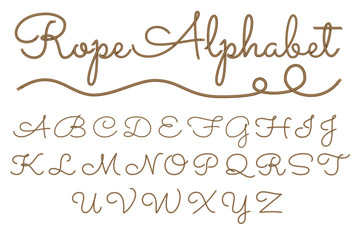 Rope Alphabet
A B C D E F G H I J
K L M N O P Q R S T
U V W X Y Z